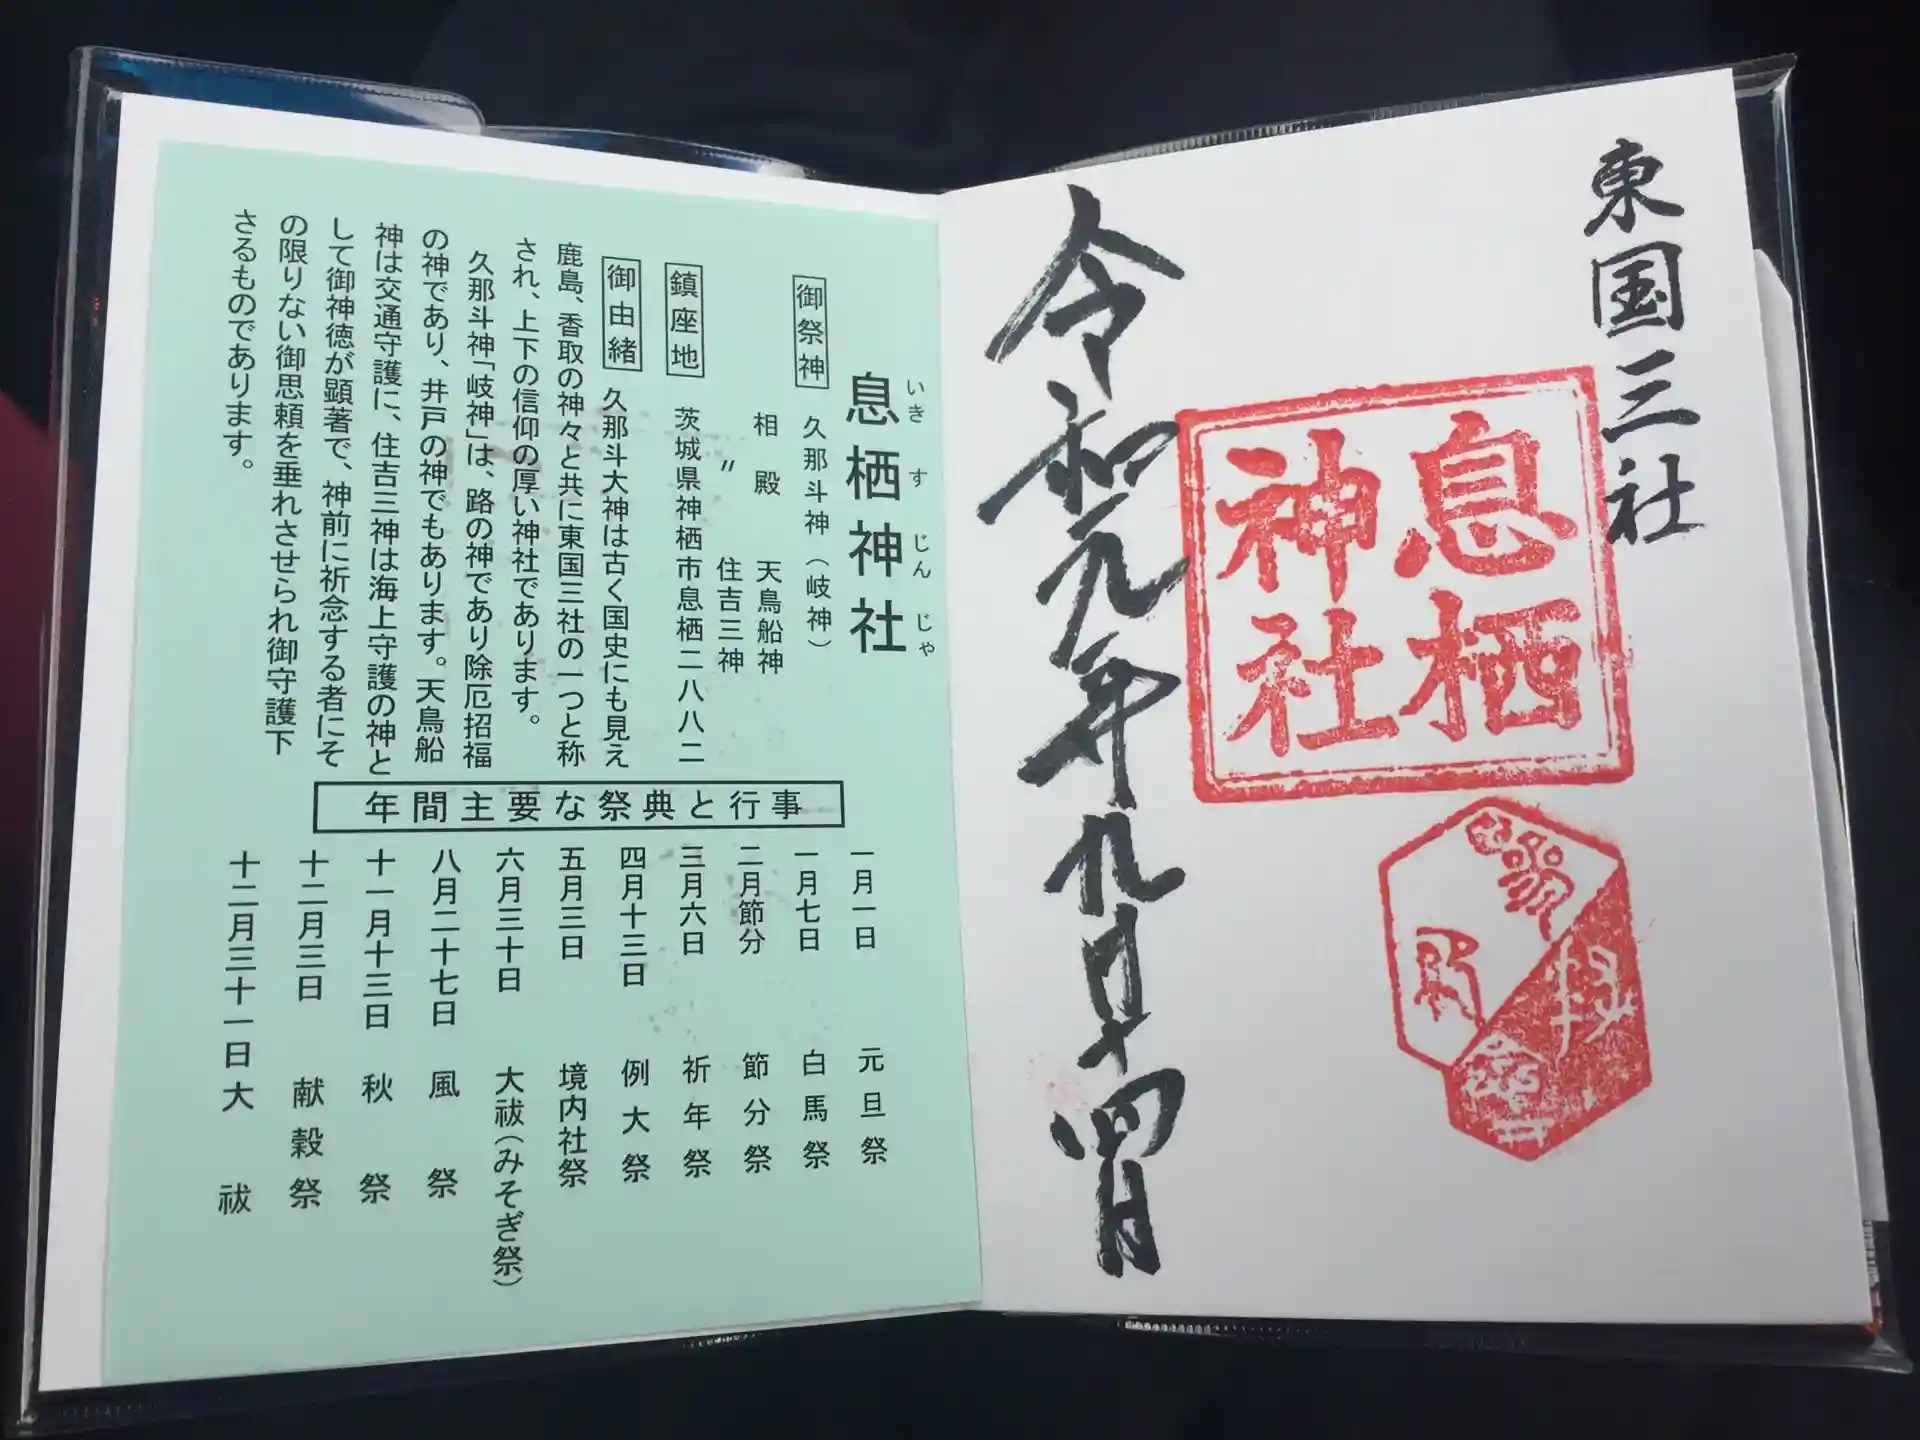 東国三社
息栖
神社
令和元年九月十四日
息栖神社
いきすじんじゃ
御祭神 久那斗神（岐神）
相殿 天鳥船神
〃 住吉三神
鎮座地 茨城県神栖市息栖二八八二
御由緒 久那斗大神は古く国史にも見え
鹿島、香取の神々と共に東国三社の一つと称
され、上下の信仰の厚い神社であります。
久那斗神「岐神」は、路の神であり除厄招福
の神であり、井戸の神でもあります。天鳥船
神は交通守護に、住吉三神は海上守護の神と
して御神徳が顕著で、神前に祈念する者にそ
の限りない御思頼を垂れさせられ御守護下
さるものであります。
年間主要な祭典と行事
一月一日 元旦祭
一月七日 白馬祭
二月節分 節分祭
三月六日 祈年祭
四月十三日 例大祭
五月三日 境内社祭
六月三十日 大祓（みそぎ祭）
八月二十七日 風祭
十一月十三日 秋祭
十二月三日 献穀祭
十二月三十一日 大祓